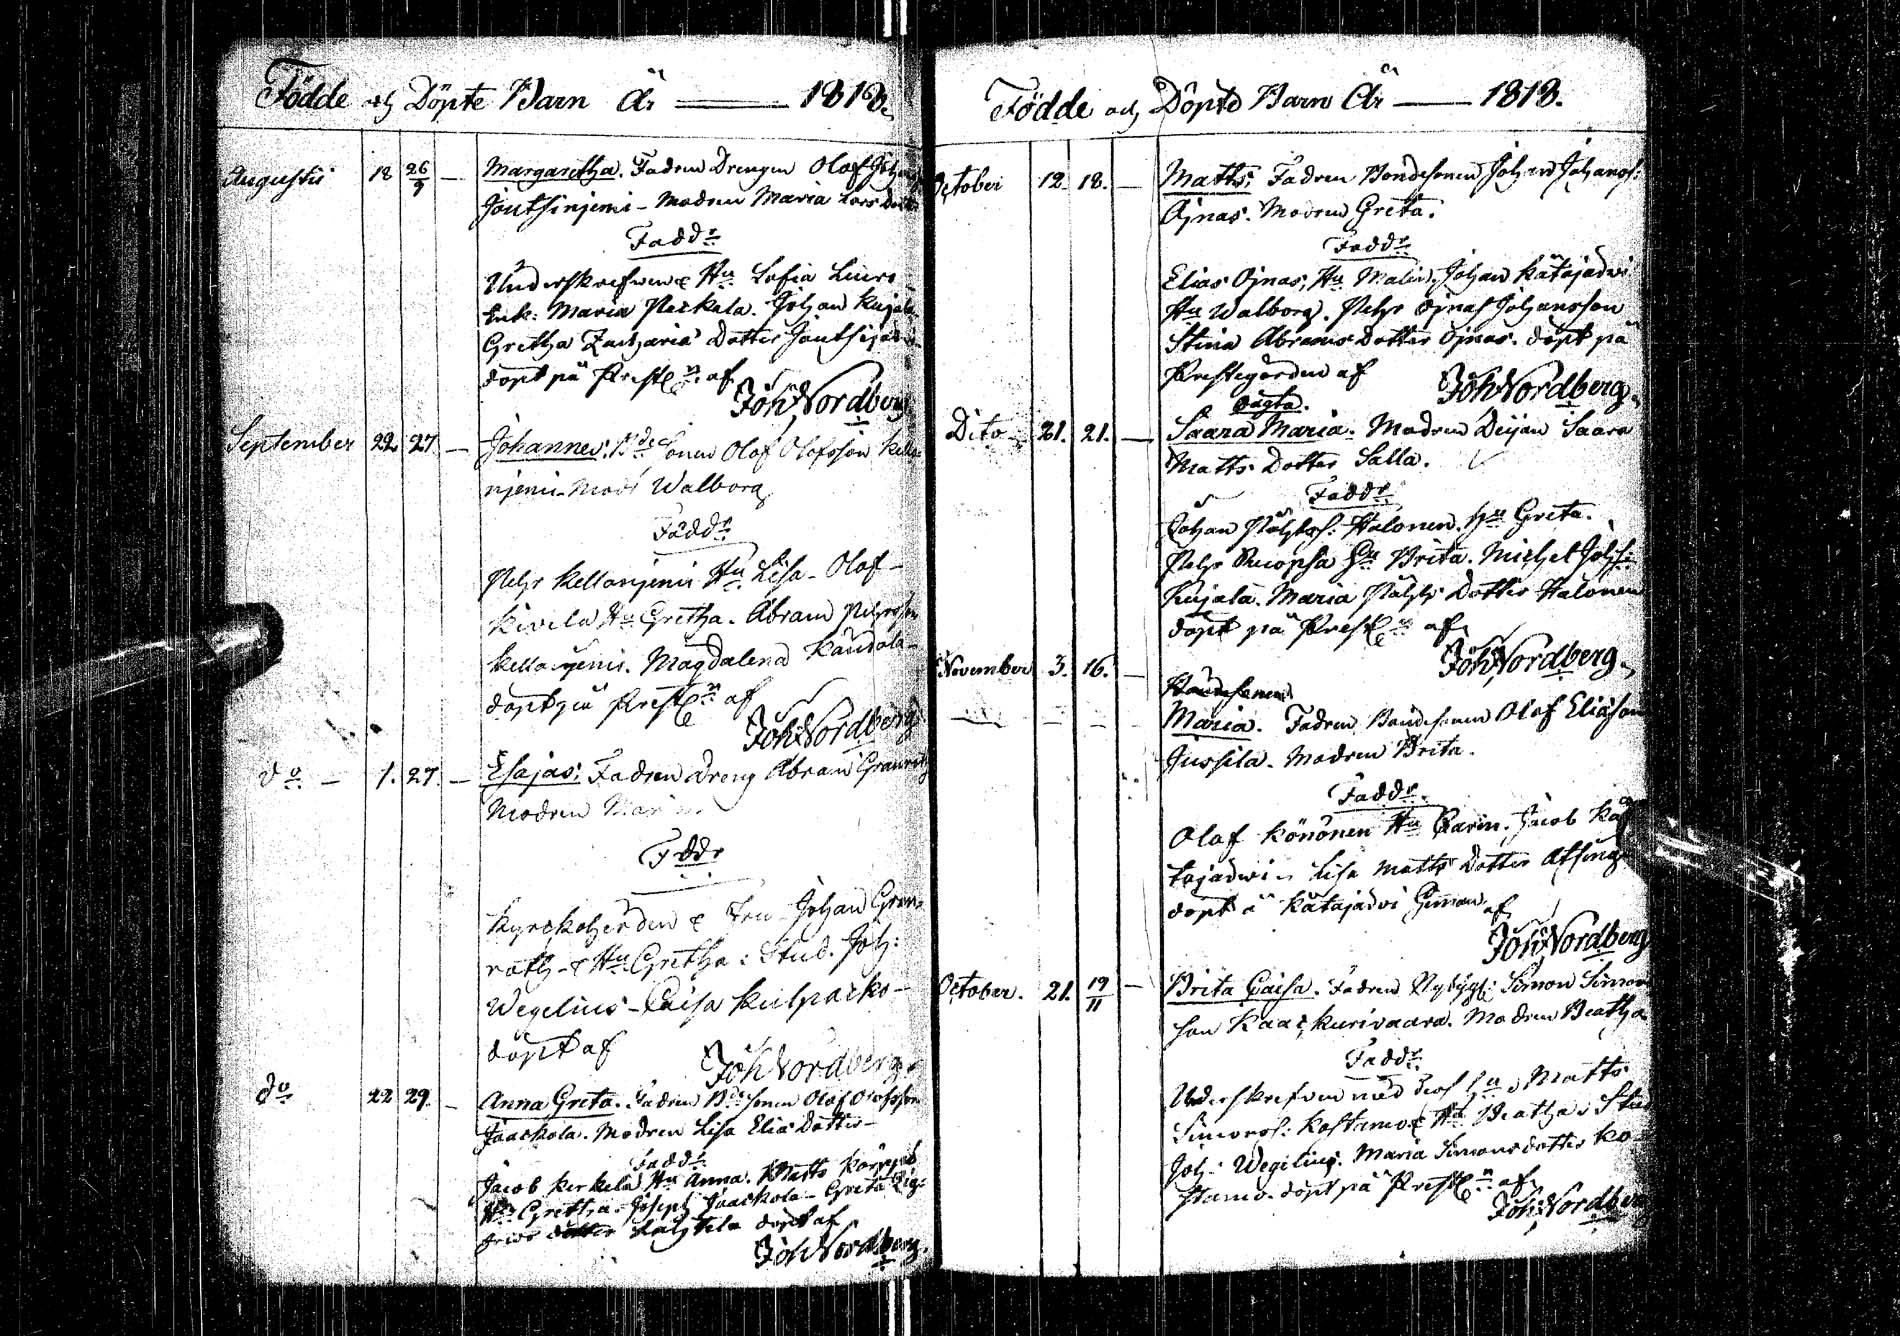 Födde och Döpte Barn År — 1818.
Augusti 18 26/9 — Margaretha. Fadren Drengen Olof
Joutsinjemi - Modren Maria Lars
Fadd:r
Underskrefven & H:u Sofia
Enk: Maria Perkela. Johan Kujala
Gretha Zacharia Dotter
döpt på Prestg:n af
Joh: Nordberg
September 22. 27. — Johannes. B:de Sonen Olof Olofsson Kella
njemi. Mod: Walborg
Fadd:r
Pehr Kellanjemi H:u Lisa - Olof
Kivela H:u Gretha. Abram Pehrsson
Kellanjemi. Magdalena
döpt på Prestg:n af
Joh: Nordberg
d:o — 1. 27. — Esajas; Fadren Dreng Abram
Modren
Fddr
Kyrckoherden & Fru - Johan Gran
roth - & H:u Gretha & Stud. Joh:
Wegelius - Caisa Kulpacko -
döpt af
Joh: Nordberg
d:o 22 29. — Anna Greta. Fadren B:de Sonen Olof Olofsson
Jaaskola. Modren Lisa Elias Dotter -
Fadd:r
Jacob Kerkela H:u Anna. Matts
H:u Gretha. Joseph Jaaskola - Greta
dotter döpt af
Joh: Nordberg.
Födde och Döpte Barn År — 1818.
October 12. 18. — Matts; Fadren Bondesonen Johan Johanss:
Ojnas. Modren Greta.
Fadd:r
Elias Ojnas, H:u Malin, Johan Kätajadwi
H:u Walborg. Pehr Ojnas Johansson
Stina Abrams Dotter Ojnas. döpt på
Prestegården af
Joh: Nordberg.
oägta.
Dito - 21. 21. — Saara Maria. Modren Pijan Saara
Matts Dotter Salla.
Fadd:r
Johan Halonen. H:u Greta.
Pehr Ruopsa H:u Brita. Michel Johs:
Kujala. Maria Dotter Halonen
döpt på Prestg:n af
Joh: Nordberg.
November 3. 16. —
Bondesonen
Maria. Fadren Bondesonen Olof Eliasson
Jussila. Modren Brita.
Fadd:r
Olof Könönen H:u Carin. Jacob Kä
tajadwi. Lisa Matts Dotter
döpt å Kätajadwi af
Joh: Nordberg
October. 21. 19/11 — Brita Caisa. Fadren Nybygg: Simon Simon
son Kaackurivaara. Modren Beatha
Fadd:r
Underskrefven med dess H:u & Matts
Simonss: Kostamo & H:u Beatha & Stud
Joh: Wegelius. Maria Simonsdotter Ko
stamo. döpt på Prestg:n af
Joh: Nordberg